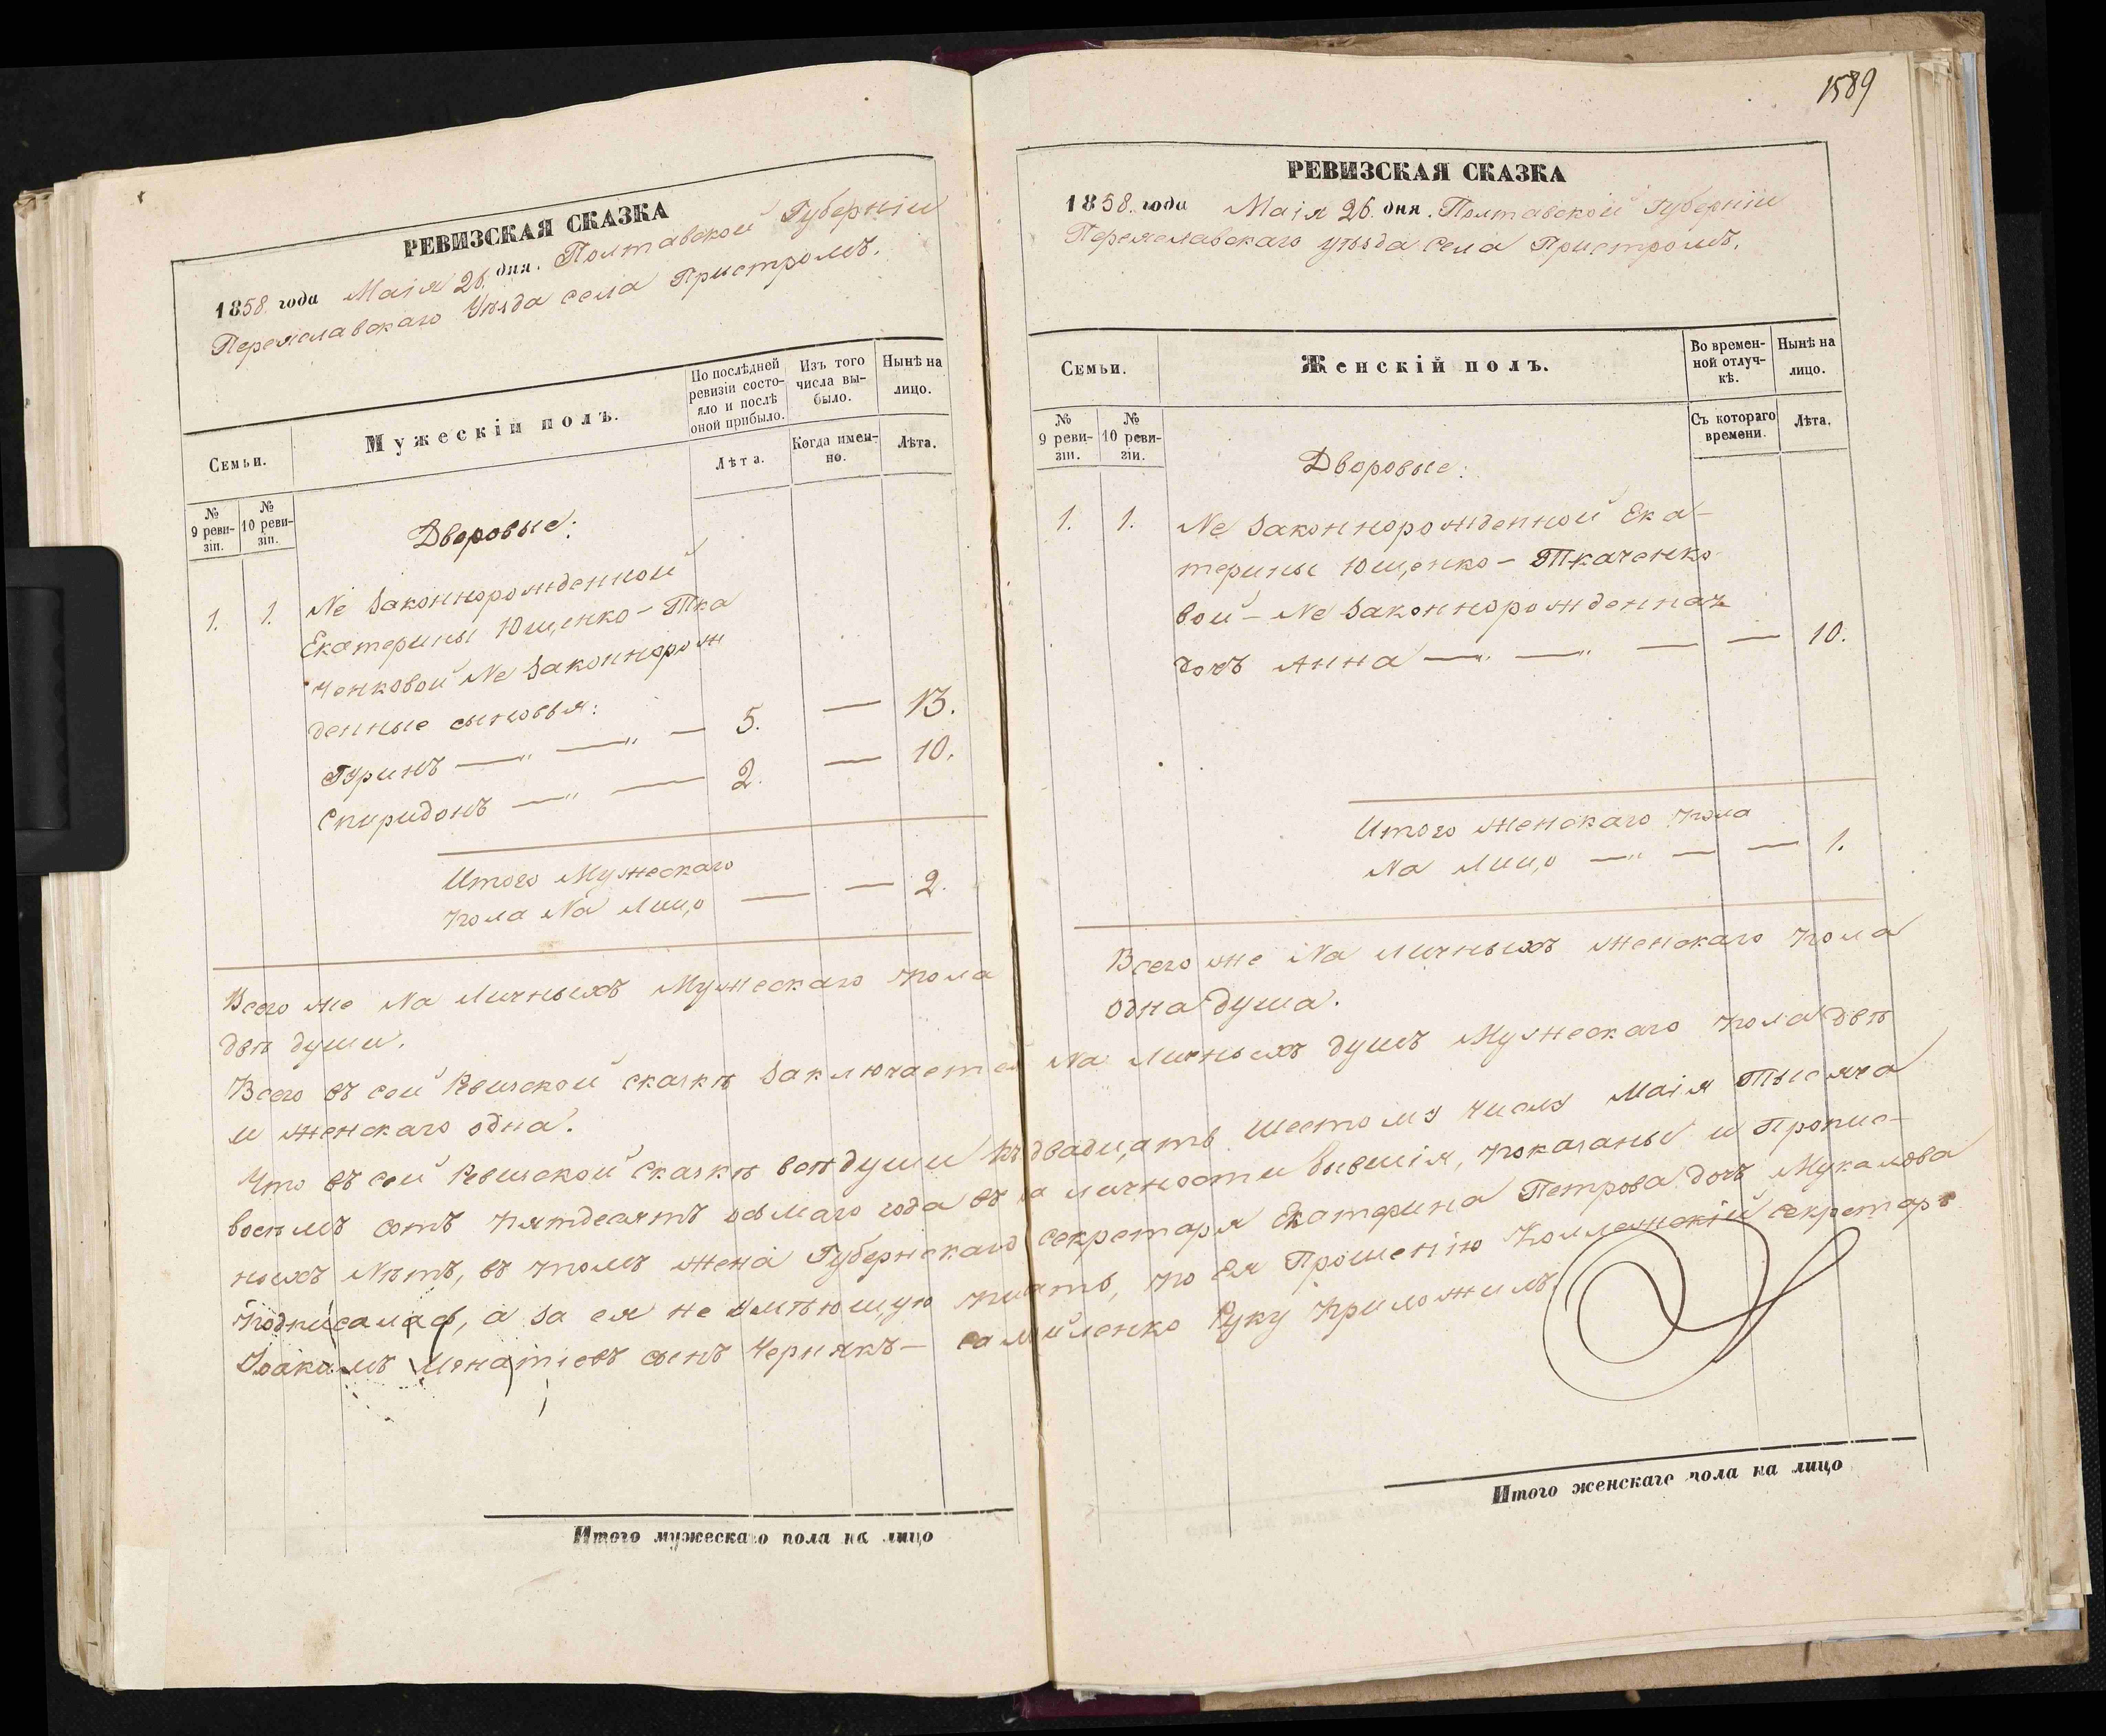 РЕВИЗСКАЯ СКАЗКА
1858 года Маія 26. дня. Полтавской Губерніи
Переяславскаго Уѣзда села Пристромъ.
Семьи.
Мужескій полъ.
По послѣдней ревизіи состояло и послѣ оной прибыло.
Изъ того числа выбыло.
Нынѣ на лицо.
№ 9 ревизіи.
№ 10 ревизіи.
Лѣта.
Когда именно.
Лѣта.
Дворовые:
1. 1. Не Законнорожденной
Екатерины Ющенко-Тка
ченковой Не Законнорож
денные сыновья:
Гуринъ — „ — „ — 5. — 13.
Спиридонъ — „ — 2. — 10.
Итого Мужескаго
пола На Лицо — — 2.
Всего же На Личныхъ Мужескаго пола
двѣ души.
Итого мужескаго пола на лицо
1589
РЕВИЗСКАЯ СКАЗКА
1858. года Маія 26. дня. Полтавской Губерніи
Переяславскаго уѣзда Села Пристромъ.
Семьи.
Женскій полъ.
Во временной отлучкѣ.
Нынѣ на лицо.
№ 9 ревизіи.
№ 10 ревизіи.
Съ котораго времени.
Лѣта.
Дворовые:
1. 1. Не Законнорожденной Ека-
терины Ющенко-Ткаченко
вой-Не Законнорожденная
дочь Анна — „ — „ — — 10.
Итого женскаго пола
На Лицо — „ — — 1.
Всего же На Личныхъ женскаго пола
одна душа.
Всего въ сей Ревизской сказкѣ Заключается На Личныхъ душъ Мужескаго пола двѣ
и женскаго одна.
Что въ сей Ревизской Сказкѣ всѣ души къ двадцать шестому числу Маія Тысяча
восемъ сотъ пятдесятъ осьмаго года въ на личности бывшія, показаны и Пропис-
ныхъ Нѣтъ, въ томъ жена Губернскаго секретаря Екатерина Петрова дочь Мукалова
подписалась, а за ея не умѣющую писать, по Ея Прошенію Коллежскій секретарь
Іоакимъ Игнатіевъ сынъ Чернякъ-Самойленко Руку приложилъ.
Итого женскаго пола на лицо